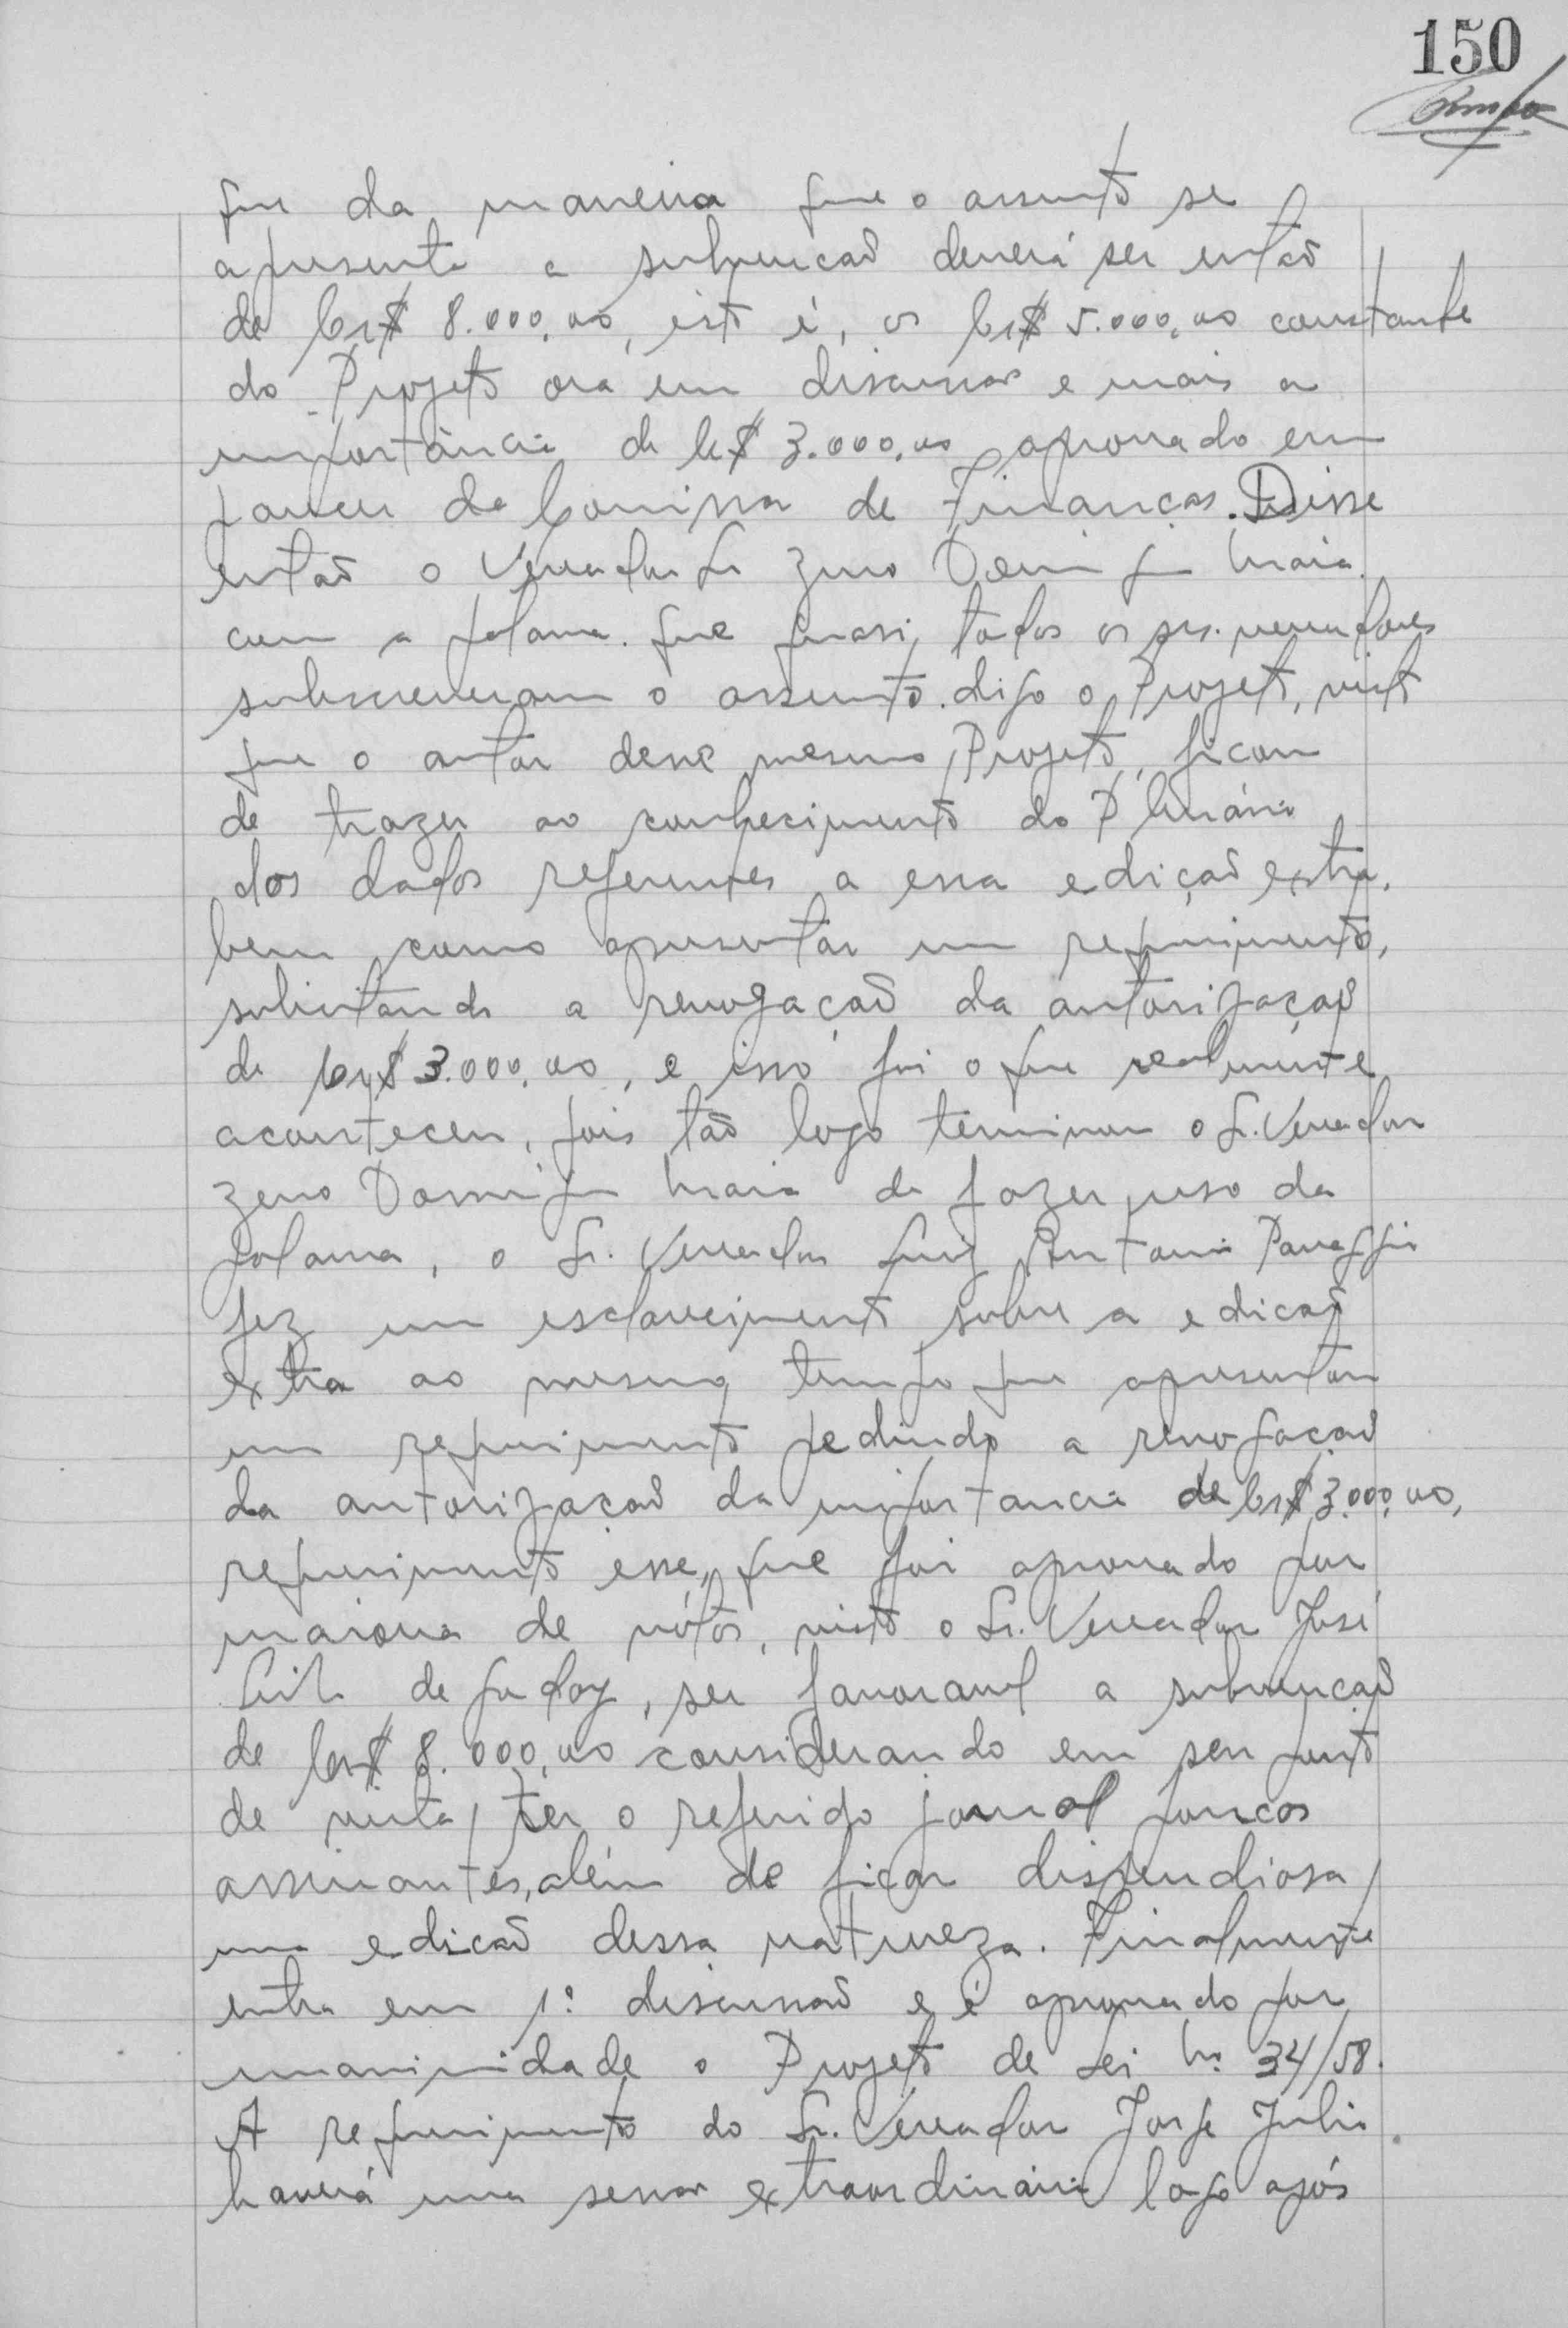 150
que da maneira que o assunto se
apresenta a subvencaõ deverá ser entaõ
de Cr$ 8.000,00, isto é, os Cr$ 5.000,00 constante
do Projeto ora em discussão e mais a
importância de Cr$ 3.000,00 aprovado em
parecer da Comissão de Finanças. Disse
entaõ o Vereador Sr Zeno Maia
com a palavra. que quasi todos os srs. vereadores
subscreveram o assunto. digo o Projeto, visto
que o autor desse mesmo Projeto, ficou
de trazer ao conhecimento do Plenário
dos dados referentes a essa ediçaõ extra.
bem como apresentar um requerimento,
solicitando a revogaçaõ da autorizaçaõ
de Cr$ 3.000,00, e isso foi o que realmente
aconteceu, pois tão logo terminou o Sr. Vereador
Zeno Maia de fazer uso da
palavra, o Sr. Vereador Luiz Antonio
fez um esclarecimento sobre a edicaõ
extra ao mesmo tempo que apresentou
um requerimento pedindo a revogacaõ
da autorizaçaõ da importancia de Cr$ 3.000,00,
requerimento esse, que foi aprovado por
maioria de vótos, visto o Sr. Vereador José
de Godoy, ser favoravel a subvencaõ
de Cr$ 8.000,00 considerando em seu ponto
de vista, ter o referido jornal poucos
assinantes, além de ficar dispendiosa
uma edicaõ dessa natureza. Finalmente
entra em 1ª discussaõ e é aprovado por
unanimidade o Projeto de Lei Nº 34/58.
A requerimento do Sr. Vereador Jorge Julio
haverá uma sessão extraordinária logo após